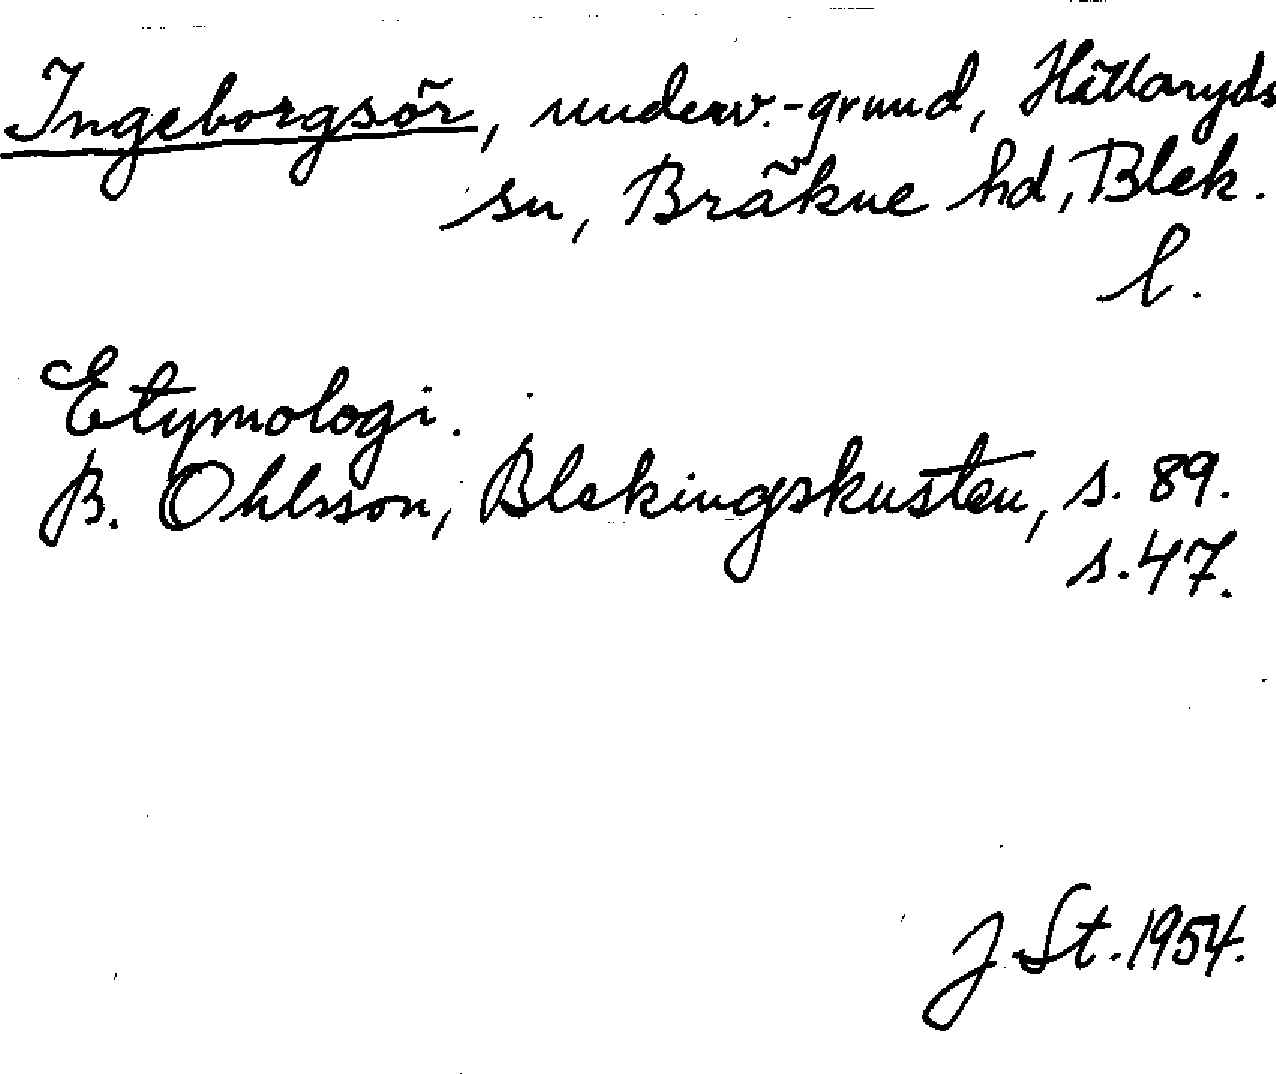 Ingeborgsör, underv.-grund, Hällaryds
sn, Bräkne hd, Blek.
l.
Etymologi.
B. Ohlsson, Blekingskusten, s. 89.
s. 47.
J. St. 1954.